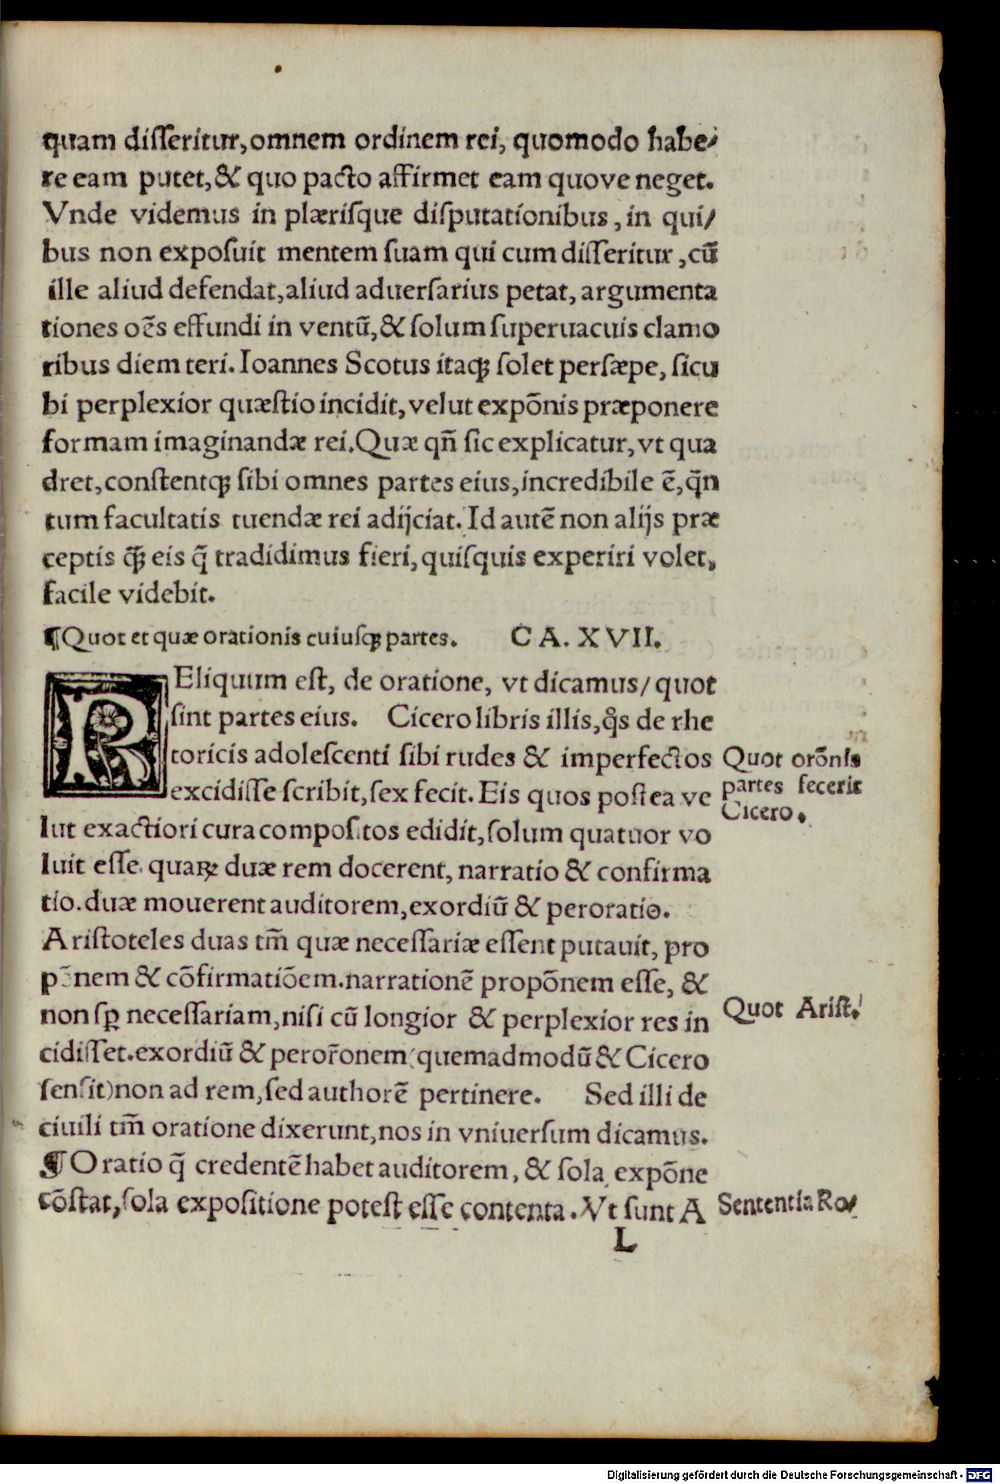 quam disseritur, omnem ordinem rei, quomodo habe⸗
re eam putet, & quo pacto affirmet eam quove neget.
Vnde videmus in plærisque disputationibus, in qui/
bus non exposuit mentem suam qui cum disseritur, cū
ille aliud defendat, aliud aduersarius petat, argumenta
tiones oēs effundi in ventū, & solum superuacuis clamo
ribus diem teri. Ioannes Scotus itaqꝫ solet persæpe, sicu
bi perplexior quæstio incidit, velut expōnis præponere
formam imaginandæ rei. Quæ qn̄ sic explicatur, vt qua
dret, constentqꝫ sibi omnes partes eius, incredibile ē, q̄n
tum facultatis tuendæ rei adijciat. Id autē non alijs præ
ceptis q̄ꝫ eis q̄ tradidimus fieri, quisquis experiri volet,
facile videbit.
¶Quot et quæ orationis cuiusqꝫ partes. CA. XVII.
REliquum est, de oratione, vt dicamus/ quot
sint partes eius. Cicero libris illis, q̊s de rhe
toricis adolescenti sibi rudes & imperfectos
excidisse scribit, sex fecit. Eis quos postea ve
lut exactiori cura compositos edidit, solum quatuor vo
luit esse. quaꝝ duæ rem docerent, narratio & confirma
tio. duæ mouerent auditorem, exordiū & peroratio.
Aristoteles duas tm̄ quæ necessariæ essent putauit, pro
pōnem & cōfirmatiōem. narrationē propōnem esse, &
non sꝑ necessariam, nisi cū longior & perplexior res in
cidisset. exordiū & peror̄onem (quemadmodū & Cicero
sensit) non ad rem, sed authorē pertinere. Sed illi de
ciuili tm̄ oratione dixerunt, nos in vniuersum dicamus.
¶Oratio q̄ credentē habet auditorem, & sola expōne
cōstat, sola expositione potest esse contenta. Vt sunt A
L
Quot orōnis
partes fecerit
Cicero.
Quot Arist.
Sententia Ro⸗
Digitalisierung gefördert durch die Deutsche Forschungsgemeinschaft - DFG